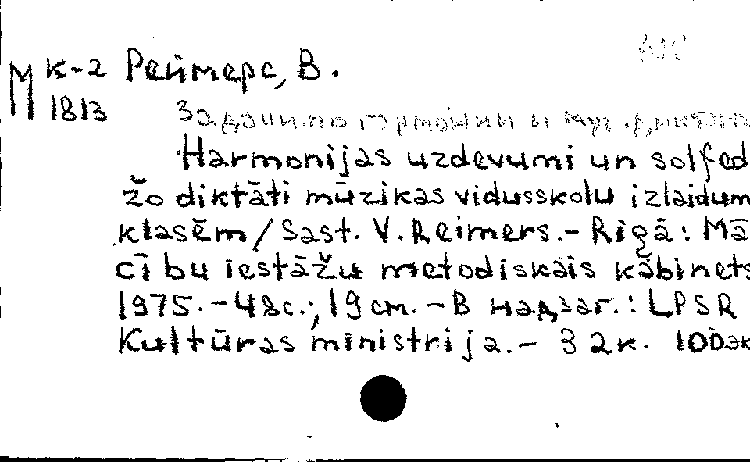 М К-2 Реймерс, В.
1813 Задачи по гармонии и муз. диктан
Harmonijas uzdevumi un solfed
žo diktāti mūzikas vidusskolu izlaidum
klasēm / Sast. V. Reimers. - Rīgā : Mā
cību iestāžu metodiskais kabinets
1975. - 48 с.; 19 см. - В надзаг.: LPSR
Kultūras ministrija. - 32к. 100эк